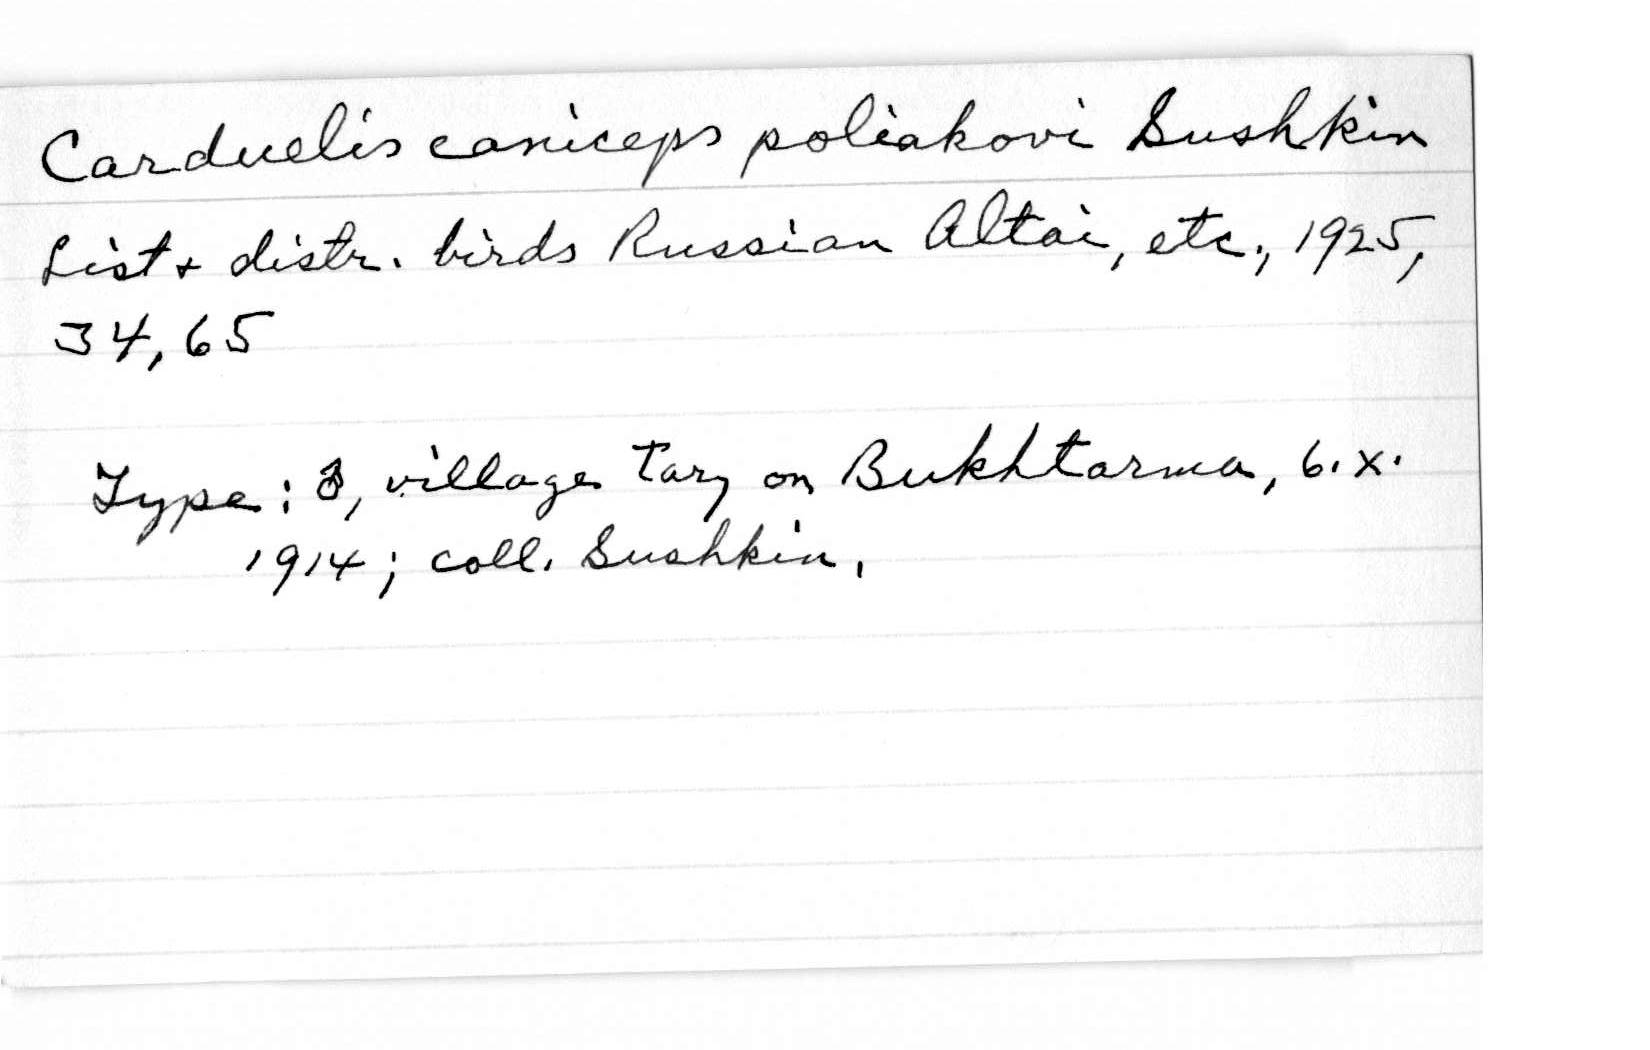 Carduelis caniceps poliakovi Sushkin
List & distr. birds Russian Altai, etc., 1925,
34, 65
Type: ♂, village Tary on Bukhtarma, 6.X.
1914; coll. Sushkin.